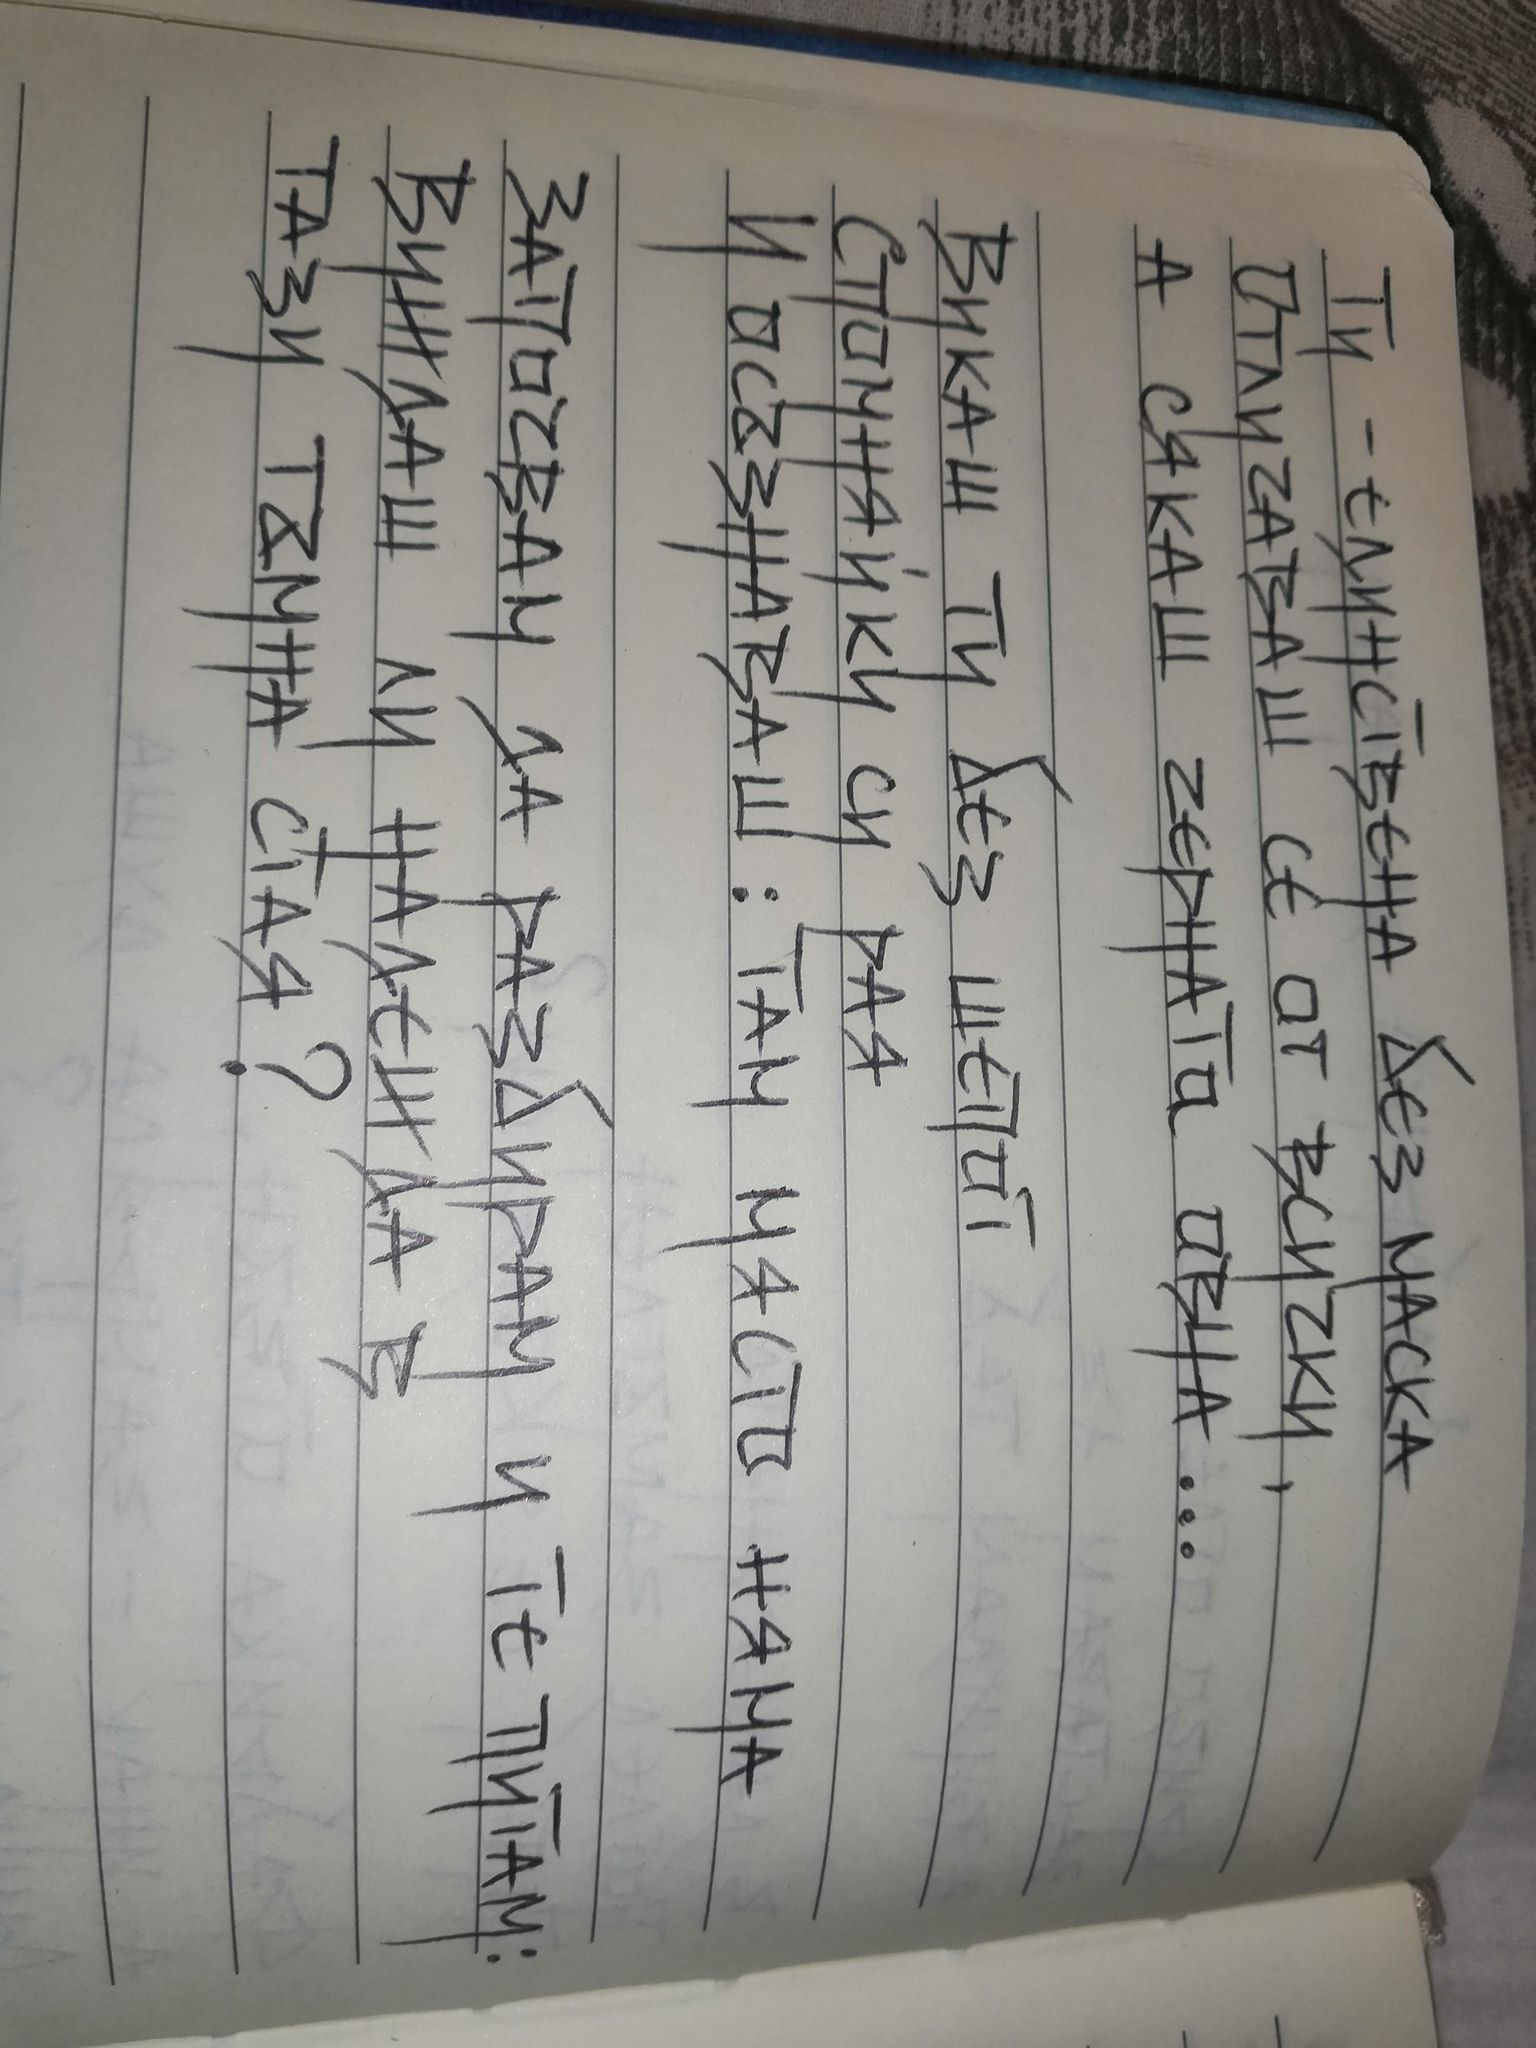 Ти - единствена без маска
Отличаваш се от всички,
а сякаш черната овца...
Викаш ти без шепот
Спомняйки си рая
И осъзнаваш: там място няма
Започвам да разбирам и те питам:
Виждаш ли надежда в
тази тъмна стая?